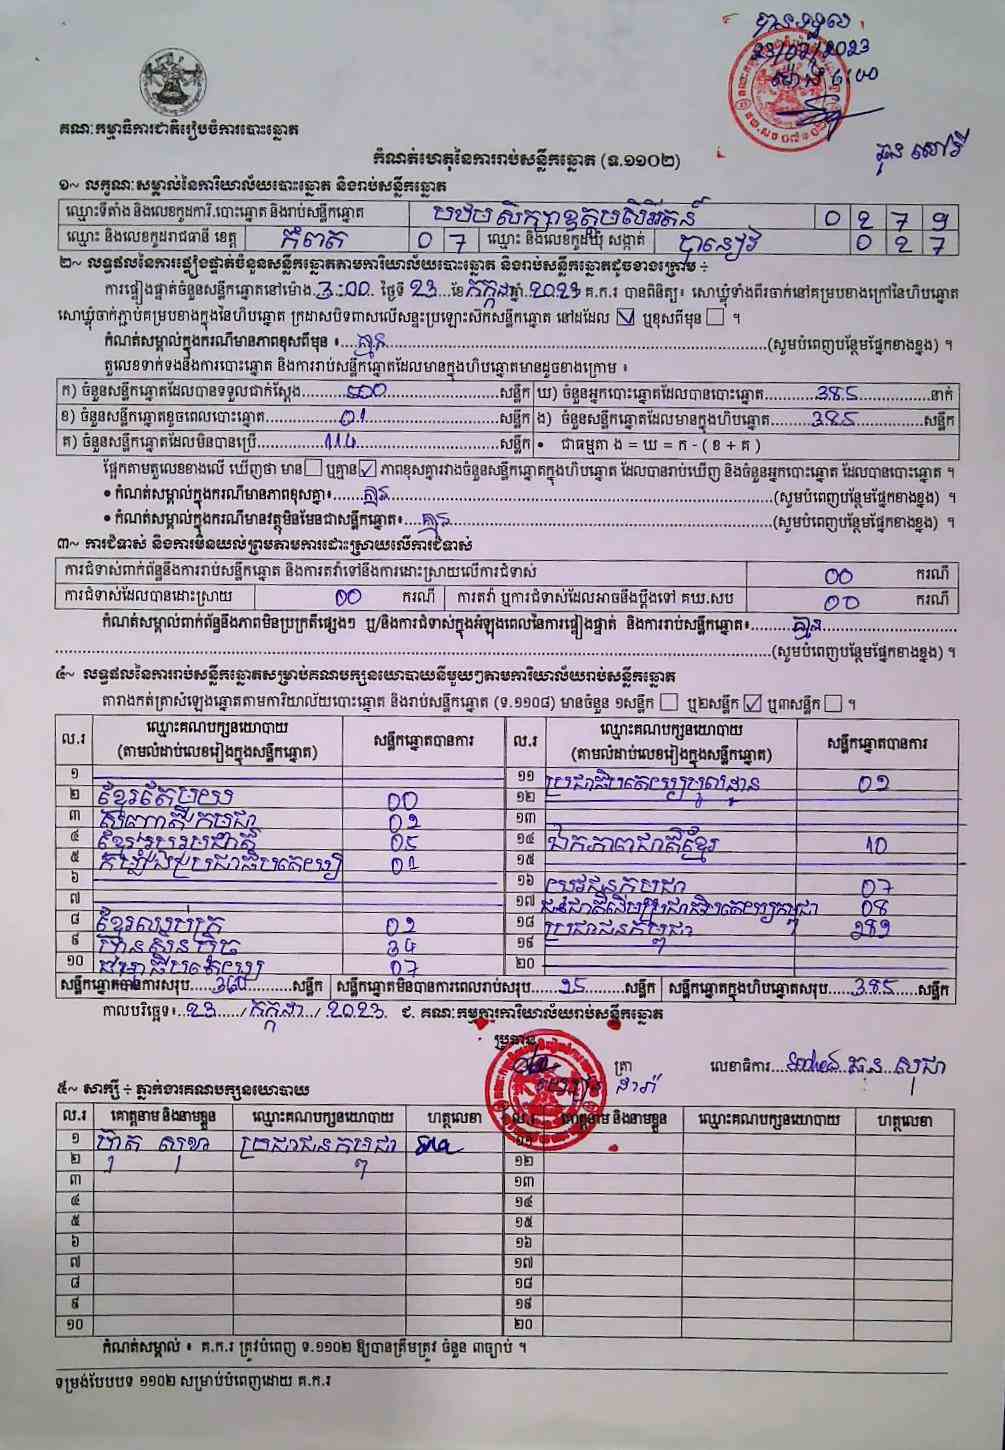 បានទទួល
23/07/2023
គណៈកម្មាធិការជាតិរៀបចំការបោះឆ្នោត
កំណត់ហេតុនៃការរាប់សន្លឹកឆ្នោត (ទ.១១០២)
១~ លក្ខណៈសម្គាល់នៃការិយាល័យបោះឆ្នោត និងរាប់សន្លឹកឆ្នោត
ឈ្មោះទីតាំង និងលេខកូដការិ.បោះឆ្នោត និងរាប់សន្លឹកឆ្នោត 0 2 7 9
ឈ្មោះ និងលេខកូដរាជធានី ខេត្ត កំពត 0 7 ឈ្មោះ និងលេខកូដឃុំ សង្កាត់ 0 2 7
២~ លទ្ធផលនៃការផ្ទៀងផ្ទាត់ចំនួនសន្លឹកឆ្នោតតាមការិយាល័យបោះឆ្នោត និងរាប់សន្លឹកឆ្នោតដូចខាងក្រោម ÷
ការផ្ទៀងផ្ទាត់ចំនួនសន្លឹកឆ្នោតនៅម៉ោង 3:00 ថ្ងៃទី 23 ខែ កក្កដា ឆ្នាំ 2023 គ.ក.រ បានពិនិត្យ៖ សោឃ្លុំទាំងពីរចាក់នៅគម្របខាងក្រៅនៃហិបឆ្នោត
សោឃ្លុំចាក់ភ្ជាប់គម្របខាងក្នុងនៃហិបឆ្នោត ក្រដាសបិទពាសលើសន្ទះប្រឡោះសិកសន្លឹកឆ្នោត នៅដដែល ☑ ឬខុសពីមុន ☐ ។
កំណត់សម្គាល់ក្នុងករណីមានភាពខុសពីមុន ៖ គ្មាន (សូមបំពេញបន្ថែមផ្នែកខាងខ្នង) ។
តួលេខទាក់ទងនឹងការបោះឆ្នោត និងការរាប់សន្លឹកឆ្នោតដែលមានក្នុងហិបឆ្នោតមានដូចខាងក្រោម ៖
ក) ចំនួនសន្លឹកឆ្នោតដែលបានទទួលជាក់ស្តែង 500 សន្លឹក ឃ) ចំនួនអ្នកបោះឆ្នោតដែលបានបោះឆ្នោត 385 នាក់
ខ) ចំនួនសន្លឹកឆ្នោតខូចពេលបោះឆ្នោត 01 សន្លឹក ង) ចំនួនសន្លឹកឆ្នោតដែលមានក្នុងហិបឆ្នោត 385 សន្លឹក
គ) ចំនួនសន្លឹកឆ្នោតដែលមិនបានប្រើ 114 សន្លឹក • ជាធម្មតា ង = ឃ = ក - ( ខ + គ )
ផ្អែកតាមតួលេខខាងលើ ឃើញថា មាន ☐ ឬគ្មាន ☑ ភាពខុសគ្នារវាងចំនួនសន្លឹកឆ្នោតក្នុងហិបឆ្នោត ដែលបានរាប់ឃើញ និងចំនួនអ្នកបោះឆ្នោត ដែលបានបោះឆ្នោត ។
• កំណត់សម្គាល់ក្នុងករណីមានភាពខុសគ្នា៖ គ្មាន (សូមបំពេញបន្ថែមផ្នែកខាងខ្នង) ។
• កំណត់សម្គាល់ក្នុងករណីមានវត្ថុមិនមែនជាសន្លឹកឆ្នោត៖ គ្មាន (សូមបំពេញបន្ថែមផ្នែកខាងខ្នង) ។
៣~ ការជំទាស់ និងការមិនយល់ព្រមតាមការដោះស្រាយលើការជំទាស់
ការជំទាស់ពាក់ព័ន្ធនឹងការរាប់សន្លឹកឆ្នោត និងការតវ៉ាទៅនឹងការដោះស្រាយលើការជំទាស់ 00 ករណី
ការជំទាស់ដែលបានដោះស្រាយ 00 ករណី ការតវ៉ា ឬការជំទាស់ដែលអាចនឹងប្តឹងទៅ គឃ.សប 00 ករណី
កំណត់សម្គាល់ពាក់ព័ន្ធនឹងភាពមិនប្រក្រតីផ្សេងៗ ឬ/និងការជំទាស់ក្នុងអំឡុងពេលនៃការផ្ទៀងផ្ទាត់ និងការរាប់សន្លឹកឆ្នោត៖ គ្មាន
(សូមបំពេញបន្ថែមផ្នែកខាងខ្នង) ។
៤~ លទ្ធផលនៃការរាប់សន្លឹកឆ្នោតសម្រាប់គណបក្សនយោបាយនីមួយៗតាមការិយាល័យរាប់សន្លឹកឆ្នោត
តារាងកត់ត្រាសំឡេងឆ្នោតតាមការិយាល័យបោះឆ្នោត និងរាប់សន្លឹកឆ្នោត (ទ.១១០៨) មានចំនួន ១សន្លឹក ☐ ឬ២សន្លឹក ☑ ឬ៣សន្លឹក ☐ ។
ល.រ ឈ្មោះគណបក្សនយោបាយ (តាមលំដាប់លេខរៀងក្នុងសន្លឹកឆ្នោត) សន្លឹកឆ្នោតបានការ ល.រ ឈ្មោះគណបក្សនយោបាយ (តាមលំដាប់លេខរៀងក្នុងសន្លឹកឆ្នោត) សន្លឹកឆ្នោតបានការ
១ ១១ ប្រជាធិបតេយ្យមូលដ្ឋាន 02
២ ខ្មែរតែមួយ 00 ១២
៣ 02 ១៣
៤ ខ្មែររួបរួមជាតិ 05 ១៤ ឯកភាពជាតិខ្មែរ 10
៥ កម្លាំងប្រជាធិបតេយ្យ 01 ១៥
៦ ១៦ យុវជនកម្ពុជា 07
៧ ១៧ 08
៨ ខ្មែរឈប់ក្រ 02 ១៨ ប្រជាជនកម្ពុជា 282
៩ ហ៊្វុនស៊ិនប៉ិច 34 ១៩
១០ ធម្មាធិបតេយ្យ 07 ២០
សន្លឹកឆ្នោតបានការសរុប 360 សន្លឹក សន្លឹកឆ្នោតមិនបានការពេលរាប់សរុប 25 សន្លឹក សន្លឹកឆ្នោតក្នុងហិបឆ្នោតសរុប 385 សន្លឹក
កាលបរិច្ឆេទ៖ 23 / កក្កដា / 2023 ជ. គណៈកម្មការការិយាល័យរាប់សន្លឹកឆ្នោត
ប្រធាន
ត្រា លេខាធិការ
៥~ សាក្សី ÷ ភ្នាក់ងារគណបក្សនយោបាយ
ល.រ គោត្តនាម និងនាមខ្លួន ឈ្មោះគណបក្សនយោបាយ ហត្ថលេខា ល.រ គោត្តនាម និងនាមខ្លួន ឈ្មោះគណបក្សនយោបាយ ហត្ថលេខា
១ ប្រជាជនកម្ពុជា ១១
២ ១២
៣ ១៣
៤ ១៤
៥ ១៥
៦ ១៦
៧ ១៧
៨ ១៨
៩ ១៩
១០ ២០
កំណត់សម្គាល់ ៖ គ.ក.រ ត្រូវបំពេញ ទ.១១០២ ឱ្យបានត្រឹមត្រូវ ចំនួន ៣ច្បាប់ ។
ទម្រង់បែបបទ ១១០២ សម្រាប់បំពេញដោយ គ.ក.រ